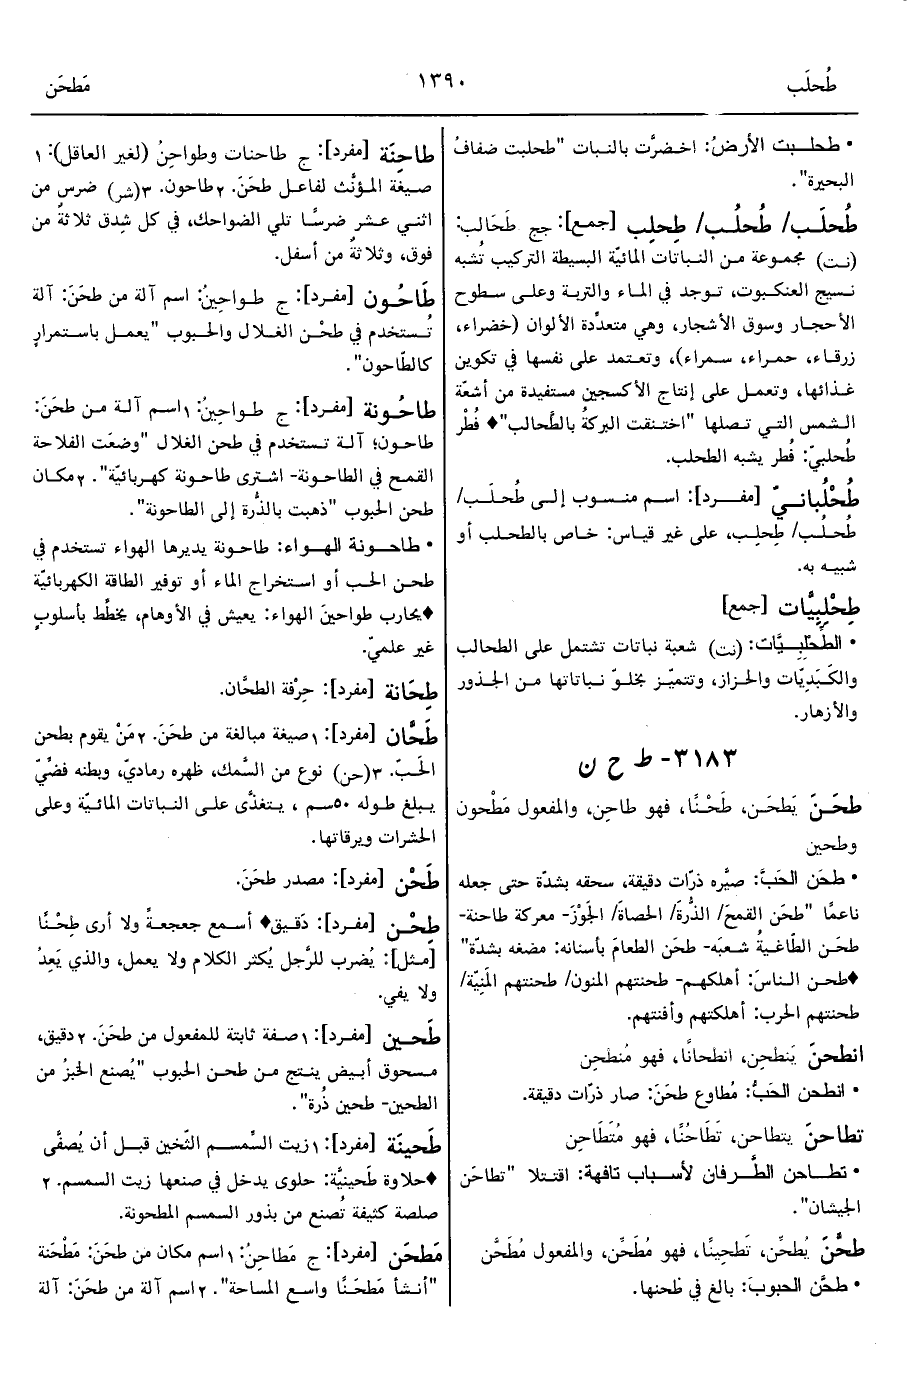 طُحلَب
١٣٩٠
مَطحَن
• طحلبت الأرضُ: اخضرَّت بالنبات "طحلبت ضفافُ
البحيرة".
طُحلَب/ طُحلُب/ طِحلِب [جمع]: جج طَحَالب:
(نت) مجموعة من النباتات المائيّة البسيطة التركيب تُشبه
نسيج العنكبوت، توجد في الماء والتربة وعلى سطوح
الأحجار وسوق الأشجار، وهي متعدِّدة الألوان (خضراء،
زرقاء، حمراء، سمراء)، وتعتمد على نفسها في تكوين
غذائها، وتعمل على إنتاج الأكسجين مستفيدة من أشعّة
الشمس التي تصلها "اختنقت البركةُ بالطَّحالب"♦ فُطْر
طُحلبيّ: فُطر يشبه الطحلب.
طُحْلُبانيّ [مفرد]: اسم منسوب إلى طُحلَب/
طُحلُب/ طِحلِب، على غير قياس: خاص بالطحلب أو
شبيه به.
طِحْلِبيَّات [جمع]
• الطِّحْلِبِيَّات: (نت) شعبة نباتات تشتمل على الطحالب
والكَبَديّات والحزاز، وتتميّز بخلوّ نباتاتها من الجذور
والأزهار.
٣١٨٣- ط ح ن
طحَنَ يَطحَن، طَحْنًا، فهو طاحِن، والمفعول مَطْحون
وطحين
• طحَن الحَبَّ: صيَّره ذرّات دقيقة، سحقه بشدّة حتى جعله
ناعمًا "طحَن القمحَ/ الذُّرةَ/ الحصاةَ/ الجَوْزَ- معركة طاحنة-
طحَن الطّاغيةُ شعبَه- طحَن الطعامَ بأسنانه: مضغه بشدّة"
♦طحن الناسَ: أهلكهم- طحنتهم المنون/ طحنتهم المَنِيّة/
طحنتهم الحرب: أهلكتهم وأفنتهم.
انطحنَ يَنطحِن، انطحانًا، فهو مُنطحِن
• انطحن الحَبُّ: مُطاوع طحَنَ: صار ذرّات دقيقة.
تطاحنَ يتطاحن، تَطَاحُنًا، فهو مُتَطَاحِن
• تطاحن الطَّرفان لأسباب تافهة: اقتتلا "تطاحَن
الجيشان".
طحَّنَ يُطحِّن، تَطحِينًا، فهو مُطَحِّن، والمفعول مُطَحَّن
• طحَّن الحبوبَ: بالغ في طحنها.
طاحِنَة [مفرد]: ج طاحنات وطواحِنُ (لغير العاقل): ١
صيغة المؤنَّث لفاعل طحَنَ. ٢طاحون. ٣(شر) ضرس من
اثني عشر ضرسًا تلي الضواحك، في كل شِدق ثلاثةٌ من
فوق، وثلاثةٌ من أسفل.
طَاحُون [مفرد]: ج طواحِينُ: اسم آلة من طحَنَ: آلة
تُستخدم في طحْن الغلال والحبوب "يعمل باستمرارٍ
كالطّاحون".
طاحُونة [مفرد]: ج طواحِينُ: ١اسم آلة من طحَنَ:
طاحون؛ آلة تستخدم في طحن الغلال "وضعَت الفلاحة
القمح في الطاحونة- اشترى طاحونة كهربائيّة". ٢مكان
طحن الحبوب "ذهبت بالذُّرة إلى الطاحونة".
• طاحونة الهواء: طاحونة يديرها الهواء تستخدم في
طحن الحب أو استخراج الماء أو توفير الطاقة الكهربائيّة
♦يحارب طواحينَ الهواء: يعيش في الأوهام، يخطِّط بأسلوبٍ
غير علميّ.
طِحَانة [مفرد]: حِرْفة الطحَّان.
طَحَّان [مفرد]: ١صيغة مبالغة من طحَنَ. ٢مَنْ يقوم بطحن
الحَبّ. ٣(حن) نوع من السَّمك، ظهره رماديّ، وبطنه فضّيّ
يبلغ طوله ٥٠سم ، يتغذَّى على النباتات المائيّة وعلى
الحشرات ويرقاتها.
طَحْن [مفرد]: مصدر طحَنَ.
طِحْن [مفرد]: دَقيق♦ أسمع جعجعةً ولا أرى طِحْنًا
[مثل]: يُضرب للرَّجل يُكثر الكلام ولا يعمل، والذي يَعِدُ
ولا يفي.
طَحين [مفرد]: ١صفة ثابتة للمفعول من طحَنَ. ٢دقيق،
مسحوق أبيض ينتج من طحن الحبوب "يُصنع الخبزُ من
الطحين- طحين ذُرة".
طَحينَة [مفرد]: ١زيت السِّمسم الثّخين قبل أن يُصفَّى
♦حلاوة طَحينيَّة: حلوى يدخل في صنعها زيت السمسم. ٢
صلصة كثيفة تُصنع من بذور السمسم المطحونة.
مَطحَن [مفرد]: ج مَطاحِنُ: ١اسم مكان من طحَنَ: مَطْحَنة
"أنشأ مَطحَنًا واسع المساحة". ٢اسم آلة من طحَنَ: آلة